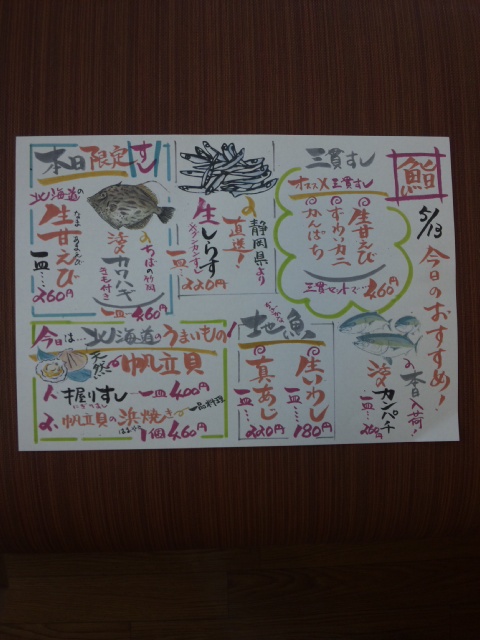 鮨
5/13
今日のおすすめ!
本日入荷!
活〆
カンパチ
一皿…
260円
三貫すし
オススメ三貫すし
生甘えび
ずわいカニ
かんぱち
三貫セットで460円
静岡県より
直送!
生しらす
一皿…
220円
本日限定すし
ちばの竹岡
活〆カワハギ
キモ付き
一皿…460円
北海道の
生甘えび
なま あまえび
一皿…
260円
地魚
生いわし
一皿…
180円
真あじ
一皿…
220円
今日は…北海道のうまいもの!
天然!
帆立貝
1、握りすし 一皿400円
にぎりずし
2、帆立貝の浜焼き 一品料理
はまやき
1個460円